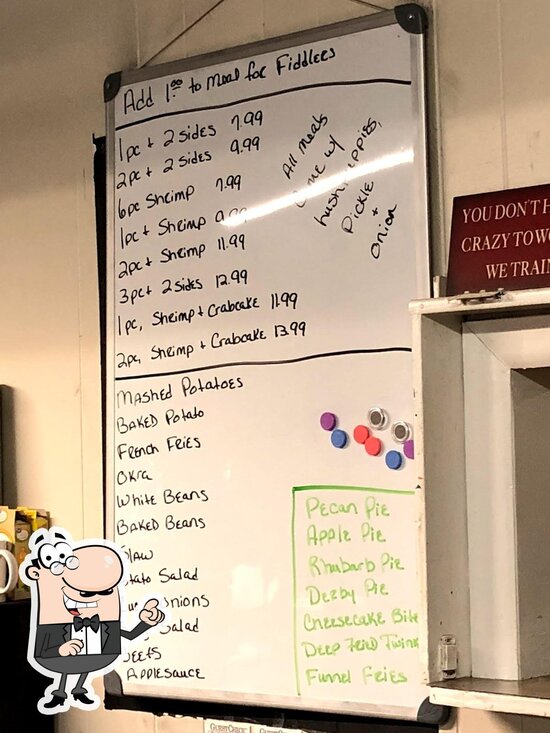 Add 1.00 to meal for Fiddlers
1pc + 2 sides 7.99
2pc + 2 sides 9.99
6pc Shrimp 7.99
1pc + Shrimp 9.99
2pc + Shrimp 11.99
3pc + 2 sides 12.99
1pc, Shrimp + Crabcake 11.99
2pc, Shrimp + Crabcake 13.99
All meals
come w/
hushpuppies,
Pickle
+
onion
Mashed Potatoes
Baked Potato
French Fries
Okra
White Beans
Baked Beans
Slaw
Potato Salad
Onions
Salad
Beets
Applesauce
Pecan Pie
Apple Pie
Rhubarb Pie
Derby Pie
Cheesecake Bite
Deep Fried Twink
Funnel Fries
YOU DON'T H
CRAZY TO WO
WE TRAIN